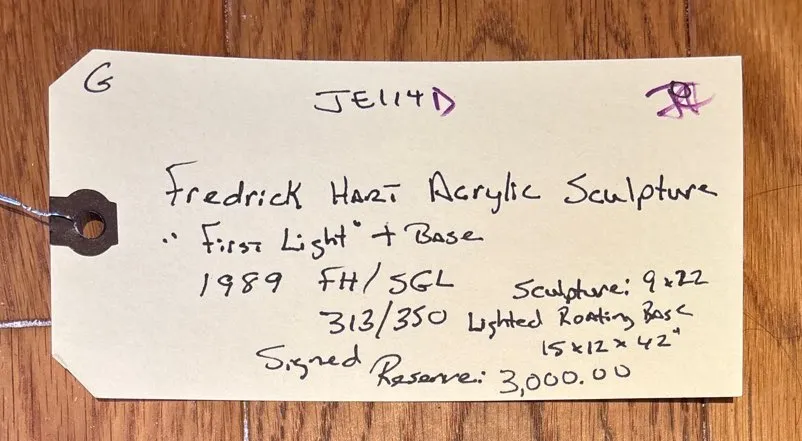 G
JE114D
Fredrick Hart Acrylic Sculpture
"First Light" + Base
1989 FH/SGL
Sculpture: 9x22
313/350 Lighted Roating Base
15x12x42"
Signed
Reserve: 3,000.00